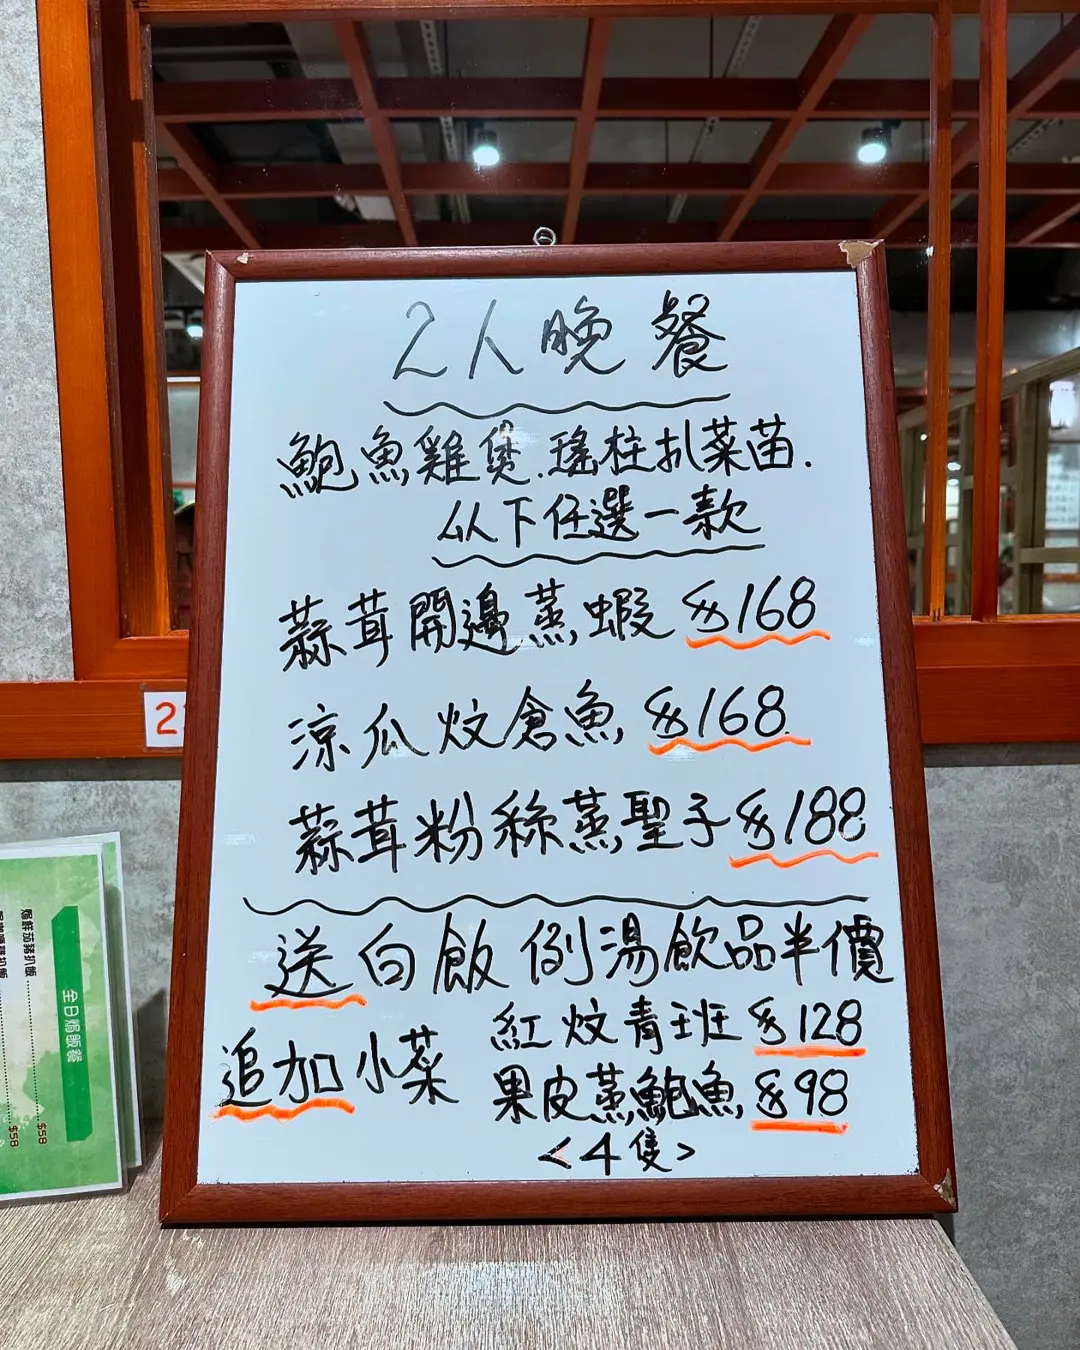 2人晚餐
鮑魚雞煲.瑤柱扒菜苗.
以下任選一款
蒜茸開邊蒸蝦 $168
涼瓜炆倉魚 $168
蒜茸粉絲蒸聖子 $188
送白飯例湯飲品半價
追加小菜
紅炆青斑 $128
果皮蒸鮑魚 $98
<4隻>
2
全日焗飯餐
焗鮮茄豬扒飯 $58
$58